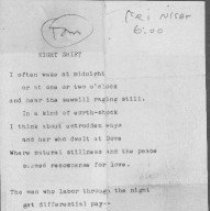 Tom
Fri
6:00
NIGHT SHIFT
I often wake at midnight
or at one or two o'clock
and hear the sawmill raging still.
In a kind of earth-shock
I think about untrodden ways
and her who dwelt at Dove
Where natural stillness and the peace
seemed resonance for love.
The men who labor through the night
get differential pay--